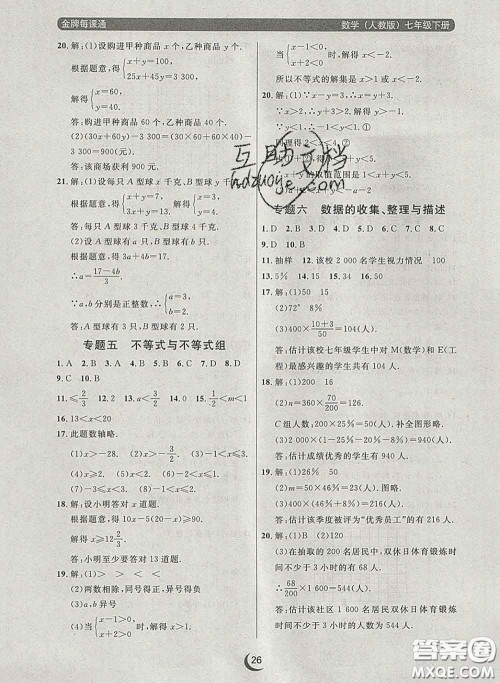 金牌每课通
数学（人教版）七年级下册
20. 解:(1)设购进甲种商品 x 件,乙种商品 y 件,
根据题意,得{x+y=100,
25x+45y=3 300.
解得{x=60,
y=40.
答:购进甲种商品 60 个,乙种商品 40 个.
(2)(30x+60y)-3 300=(30×60+60×40)-
3 300=900(元).
答:该商场获利 900 元.
21. 解:(1)设每只 A 型球 x 千克,每只 B 型球 y 千克,
根据题意,得{x+y=7,
3x+y=13.
解得{x=3,
y=4.
答:每只 A 型球 3 千克,B 型球 4 千克.
(2)设 A 型球有 a 个,B 型球有 b 个,则 3a+4b=17.
∴a=(17-4b)/3.
∵a,b 分别是正整数,∴{a=3,
b=2.
答:A 型球有 3 个,B 型球有 2 个.
专题五　不等式与不等式组
1. A 2. D 3. C 4. B 5. C 6. C 7. D 8. D
9. C 10. B
11. ≤3/2 12. a<2/3 13. 2 14. a≤2 15. -1/2<m≤1
16. 13<x<20
17. 此题数轴略.
(1)x>5 (2)x>-2/3 (3)x>-3/2
(4)x≤2 (5)x≥0 (6)x<5
(7)-3≤x≤0 (8)-3<x≤2
18. 解:设小明答对 x 道题.
根据题意,得 10x-5(20-x)>90.
解得 x≥12 2/3.
答:小明至少要答对 13 道题.
19. (1)> > < <
(2)两数相除,同号得正,异号得负
(3)a,b 异号
(4)当{x-1>0,
x+2>0时,解得 x>1.
当{x-1<0,
x+2<0时,解得 x<-2.
所以不等式的解集是 x>1 或 x<-2.
20. 解:(1)∵x-y=3,∴x=y+3.
∵x>2,∴y+3>2.∴y>-1.
∵y<1,∴-1<y<1.①
同理得2<x<4.②
1<x+y<5.
∴x+y的取值范围是1<x+y<5.
专题六　数据的收集、整理与描述
1. D 2. B 3. C 4. C
9. D 10. B
11. 抽样 12. 该校 2 000 名学生视力情况 100
13. 5% 14. 12 15. 34 16. 50
17. 解:(1)150
(2)72° 8%
(3)400×(10+3)/50=104(人).
答:估计该校七年级学生中对 M(数学)和 E(工
程)最感兴趣的学生有 104 人.
18. 解:(1)200 16
(2)n=360×70/200=126.
C 组人数:200×25%=50(人).补全图形略.
(3)2000×(25%+22%)=940(人).
答:估计成绩优秀的学生有 940 人.
19. 解:(1)26% 50
(2)m=50×46%=23(人).补图略.
(3)400×(8%+46%)=216(人).
答:估计该季度被评为“优秀员工”的有 216 人.
20. 解:(1)B (2)120
(3)在抽取的 200 名居民中,双休日体育锻炼时
间不少于 3 小时的有 68 人.
∴68/200×1 600=544(人).
答:估计该社区 1 600 名居民双休日体育锻炼
时间不少于 3 小时的人数为 544 人.
26
互助文档
hdzuoye.com
答案圈
MXQE.COM